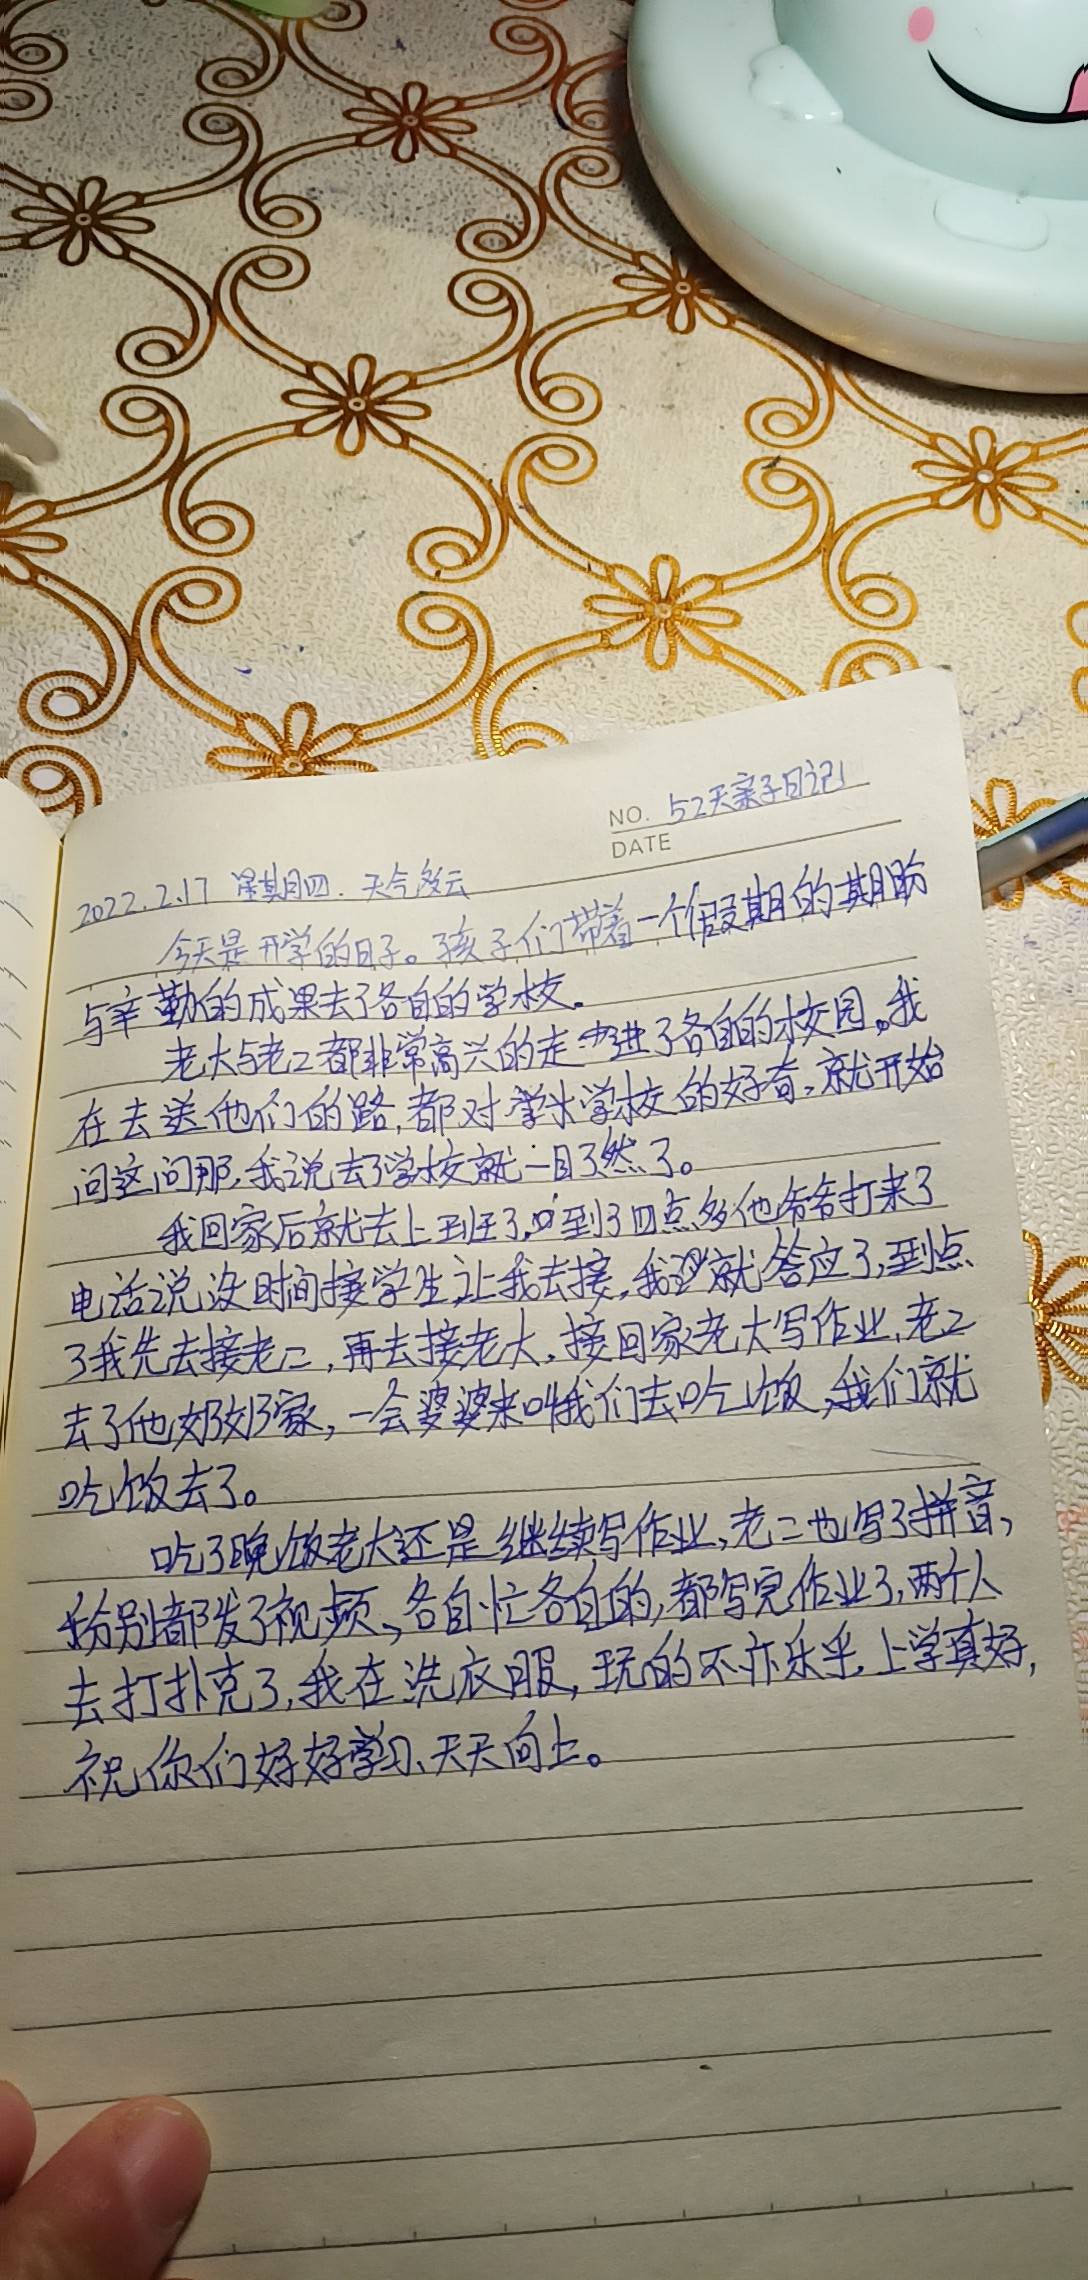 NO. 52天亲子日记
DATE
2022.2.17 星期四. 天气多云
今天是开学的日子。孩子们带着一个假期的期盼
与辛勤的成果去了各自的学校.
老大与老二都非常高兴的走进了各自的校园。我
在去送他们的路,都对学校的好奇,就开始
问这问那,我说去了学校就一目了然了。
我回家后就去上班了,到了四点多他爷爷打来了
电话说没时间接学生,让我去接,我就答应了,到点
了我先去接老二,再去接老大,接回家老大写作业,老二
去了他奶奶家,一会婆婆来叫我们去吃饭,我们就
吃饭去了。
吃了晚饭老大还是继续写作业,老二也写了拼音,
我分别都发了视频、各自忙各自的,都写完作业了,两个人
去打扑克了,我在洗衣服,玩的不亦乐乎,上学真好,
祝你们好好学习、天天向上。